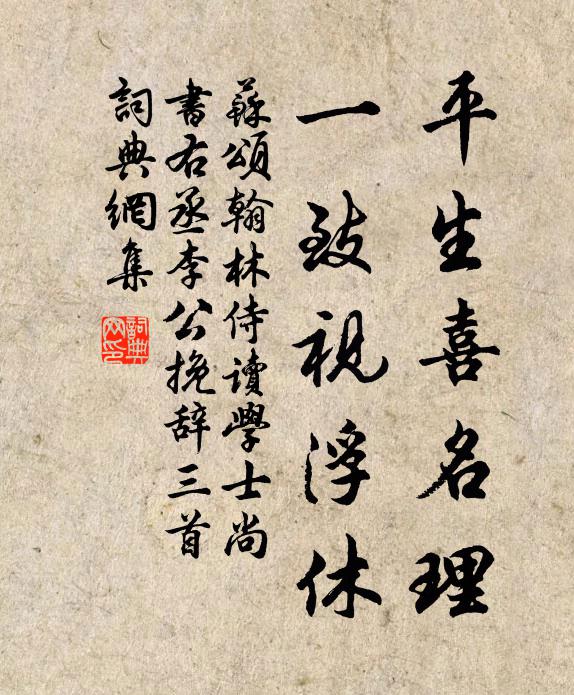 平生喜名理
一致視浮休
蘇頌翰林侍讀學士尚
書右丞李公挽辞三首
詞典網集
詞典
网印